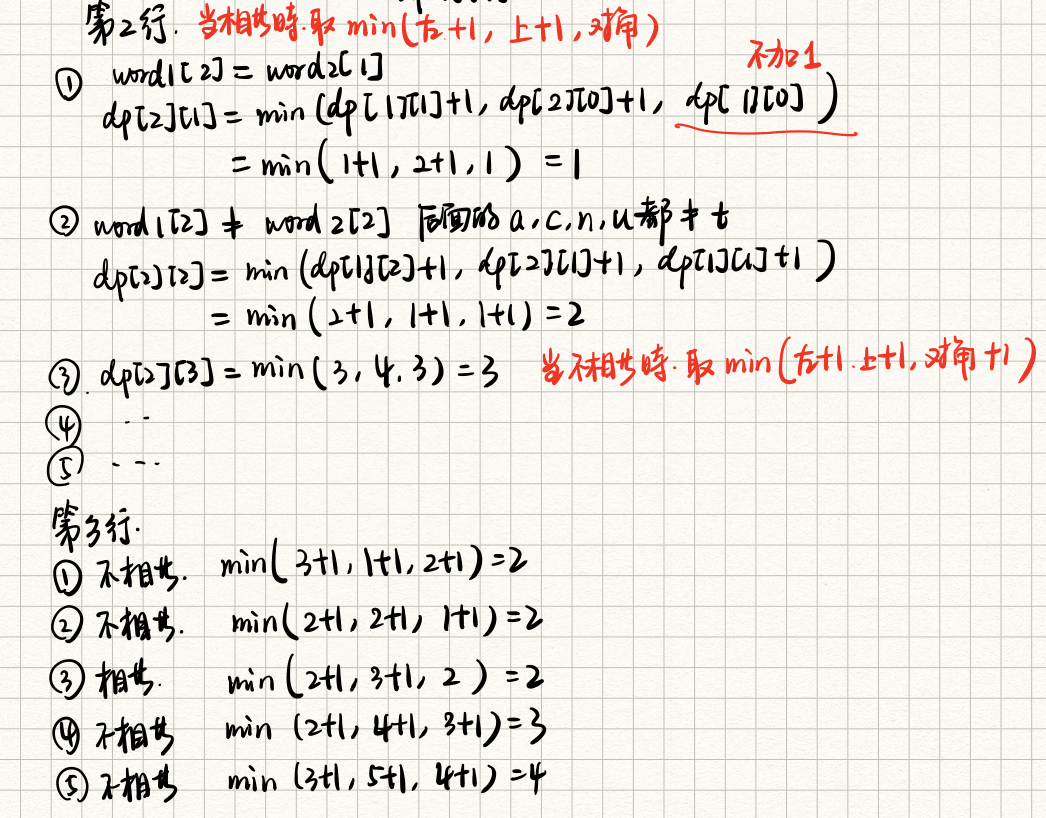 第2行. 当相世時.取 min(左+1, 上+1, 对角)
不加1
① word1[2] = word2[1]
dp[2][1] = min (dp[1][1]+1, dp[2][0]+1, dp[1][0])
= min( 1+1, 2+1, 1 ) = 1
② word1[2] ≠ word2[2] 后面的 a, c, n, u都≠ t
dp[2][2] = min (dp[1][2]+1, dp[2][1]+1, dp[1][1]+1 )
= min ( 2+1, 1+1, 1+1) = 2
③. dp[2][3] = min (3, 4, 3) = 3 当不相世時.取 min(左+1.上+1, 对角+1)
④ ..
⑤ ...
第3行.
① 不相世. min( 3+1, 1+1, 2+1) = 2
② 不相世. min( 2+1, 2+1, 1+1) = 2
③ 相世. min ( 2+1, 3+1, 2 ) = 2
④ 不相世 min (2+1, 4+1, 3+1) = 3
⑤ 不相世 min (3+1, 5+1, 4+1) = 4